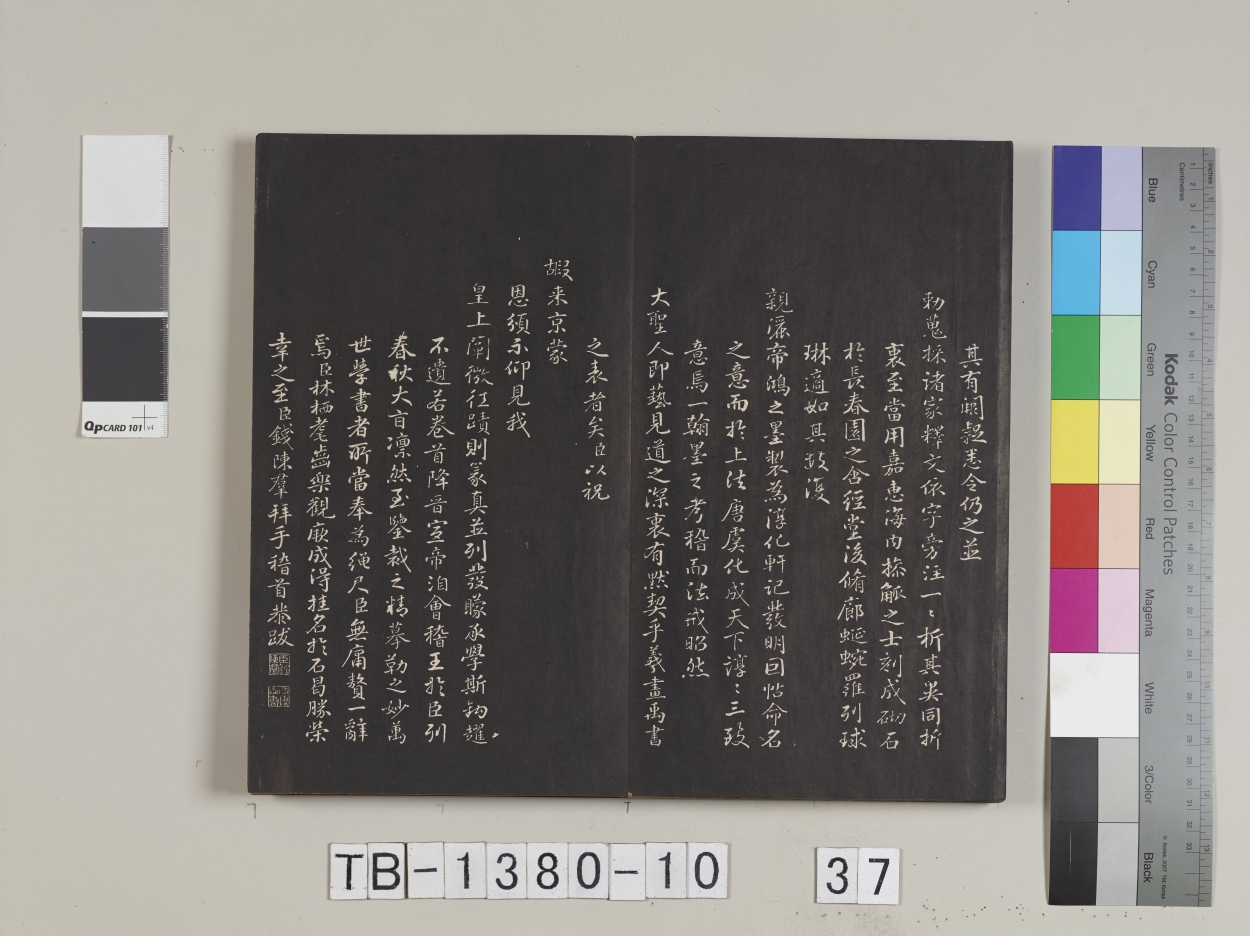 其有闕疑悉令仍之並
勅蒐採諸家釋文依字旁注一〻析其異同折
衷至當用嘉惠海内操觚之士刻成砌石
於長春園之含經堂後脩廊蜒蜿羅列球
琳適如其數復
親灑帝鴻之墨製為淳化軒記發明囙帖命名
之意而於上法唐虞化成天下諄〻三致
意焉一翰墨之考稽而法戒昭然
大聖人即藝見道之深衷有默契乎羲畫禹書
之表者矣臣以祝
嘏来京蒙
恩頒示仰見我
皇上闡微徃蹟則篆真並列發矇承學斯鈎趯
不遺若卷首降晉宣帝洎會稽王於臣列
春秋大旨凛然至鑒裁之精摹勒之妙萬
世學書者所當奉為繩尺臣無庸贅一辭
焉臣林栖耄齒樂觀厥成得挂名於石曷勝榮
幸之至臣錢陳羣拜手稽首恭跋
QpCARD 101 v4
Kodak Color Control Patches
Blue
Cyan
Green
Yellow
Red
Magenta
White
3/Color
Black
Inches
Centimetres
TB-1380-10
37